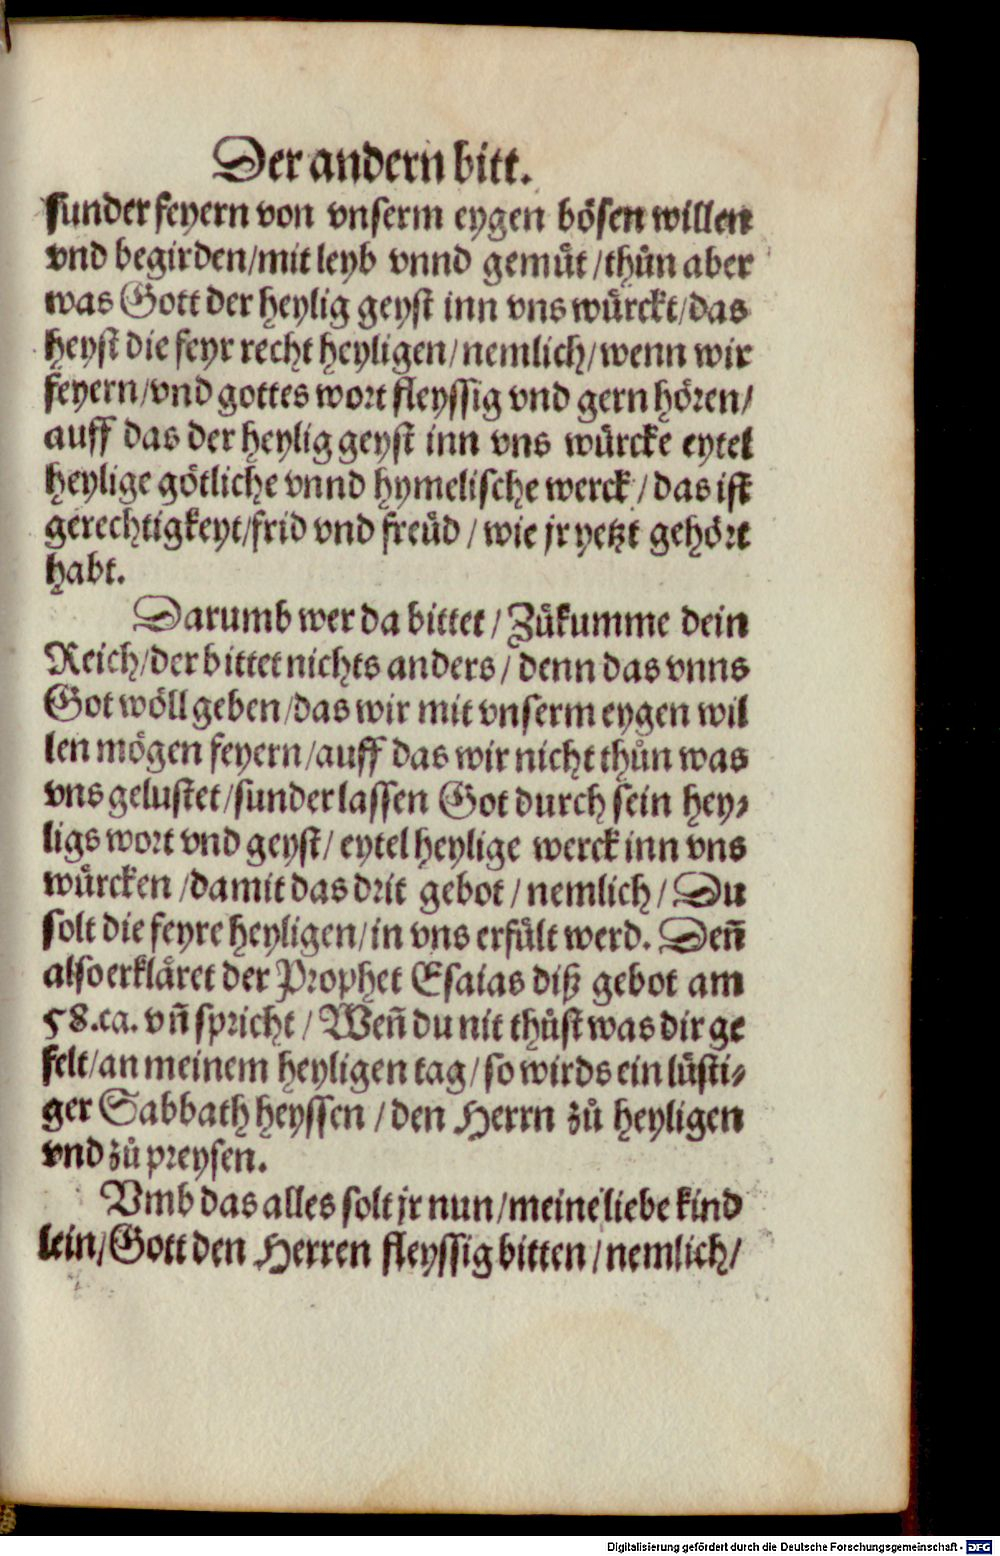 Der andern bitt.
sunder feyern von vnserm eygen bösen willen
vnd begirden/mit leyb vnnd gemuͤt/thuͤn aber
was Gott der heylig geyst inn vns wuͤrckt/das
heyst die feyr recht heyligen/nemlich/wenn wir
feyern/vnd gottes wort fleyssig vnd gern hören/
auff das der heylig geyst inn vns wuͤrcke eytel
heylige götliche vnnd hymelische werck/das ist
gerechtigkeyt/frid vnd freuͤd/wie jr yetzt gehört
habt.
Darumb wer da bittet/Zuͤkumme dein
Reich/der bittet nichts anders/denn das vnns
Got wöll geben/das wir mit vnserm eygen wil
len mögen feyern/auff das wir nicht thuͤn was
vns gelustet/sunder lassen Got durch sein hey-
ligs wort vnd geyst/eytel heylige werck inn vns
wuͤrcken/damit das drit gebot/nemlich/Du
solt die feyre heyligen/in vns erfuͤlt werd. Deñ
also erkläret der Prophet Esaias diß gebot am
58.ca. vñ spricht/Weñ du nit thuͤst was dir ge
felt/an meinem heyligen tag/so wirds ein luͤsti-
ger Sabbath heyssen/den Herrn zuͤ heyligen
vnd zuͤ preysen.
Vmb das alles solt jr nun/meine liebe kind
lein/Gott den Herren fleyssig bitten/nemlich/
Digitalisierung gefördert durch die Deutsche Forschungsgemeinschaft - DFG